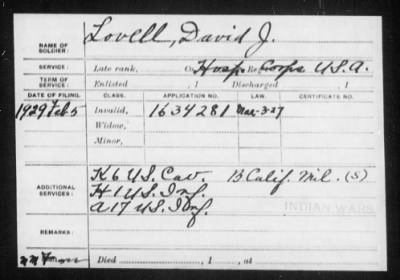 NAME OF SOLDIER: Lovell, David J.
SERVICE: Late rank, Co. Hosp. Re Corps U.S.A.
TERM OF SERVICE: Enlisted , 1 Discharged , 1
DATE OF FILING. CLASS. APPLICATION NO. LAW. CERTIFICATE NO.
1929 Feb 5 Invalid, 1634281 Mar-3-27
Widow,
Minor,
K 6 U.S. Cav. B Calif. Mil. (S)
ADDITIONAL SERVICES: H 1 U.S. Inf.
A 17 U.S. Inf.
INDIAN WARS
REMARKS:
Died , 1 , at